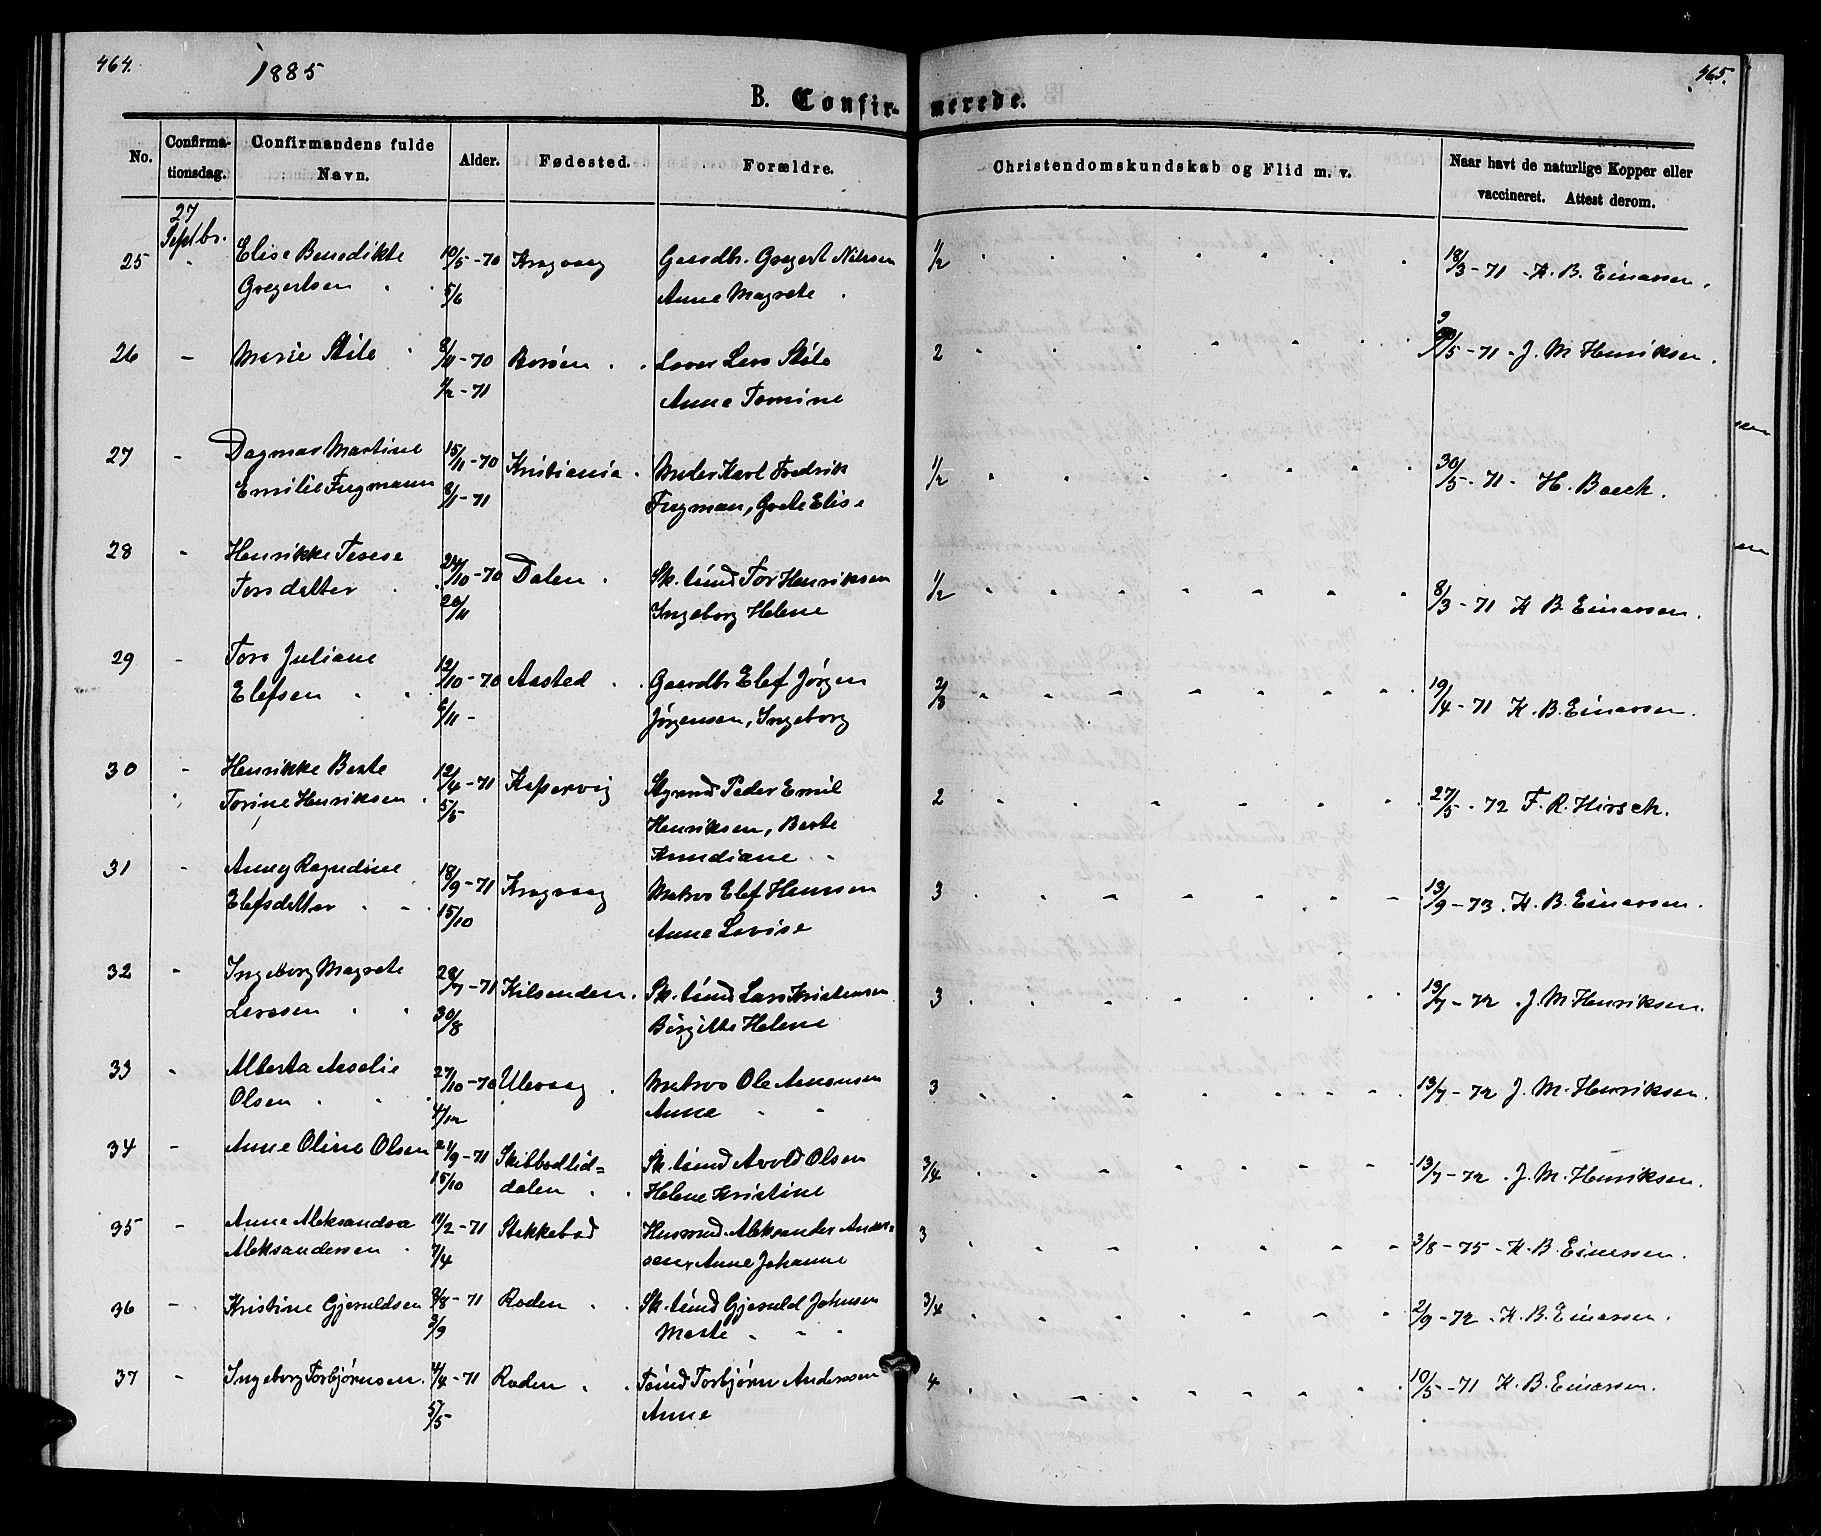 464.
1885
B. Confir-
merede.
465.
No.
Confirma-
tionsdag.
Confirmandens fulde
Navn.
Alder.
Fødested.
Forældre.
Christendomskundskab og Flid m. v.
Naar havt de naturlige Kopper eller
vaccineret. Attest derom.
27
Septbr.
25 - Elise Benedikte 10/5 - 70 Kragvaag Gaardbr. Gregert Nilssen 1/2 18/3 - 71 - K. B. Einarsen.
Gregertsen 5/6 Anne Magrete
26 - Marie Stile 8/11 - 70 Borøen Laver Lars Stile 2 9/5 - 71 - J. M. Henriksen.
1/2 - 71 Anne Tomine
27 - Dagmar Martine 15/11 - 70 Kristiania Karl Fredrik 1/2 30/5 - 71 - H. Boeck.
Emilie Fugmann 8/1 - 71 Fugman, Grete Elise
28 - Henrikke Terese 24/10 - 70 Dalen Sk. tømd Tor Henriksen 1/2 8/3 - 71 K B. Einarsen.
Torsdatter 20/11 Ingeborg Helene
29 - Tora Juliane 12/10 - 70 Aasted Gaardbr Elef Jørgen 2/3 19/4 - 71 K. B. Einarsen.
Elefsen 6/11 - Jørgensen, Ingeborg
30 - Henrikke Berte 12/4 - 71 Kaspervig Styrmd Peder Emil 2 27/5 - 72 F. R. Hirsch.
Torine Henriksen 5/5 Henriksen, Berte
Knudiane
31 - Anney Ragndine 18/9 - 71 Kragvaag Matros Elef Hansen 3 13/9 - 73. K. B. Einarsen.
Elefsdatter 15/10 Anne Lovise
32 - Ingeborg Magrete 28/7 - 71 Kilsanden Sk. tømd Lars Kristensen 3 13/7 - 72. J. M Henriksen.
Larssen 30/8 Birgitte Helene
33 - Alberta Aselie 27/10 - 70 Ulevaag Matros Ole Amonsen 3 13/7 - 72 J. M. Henriksen.
Olsen 4/12 Anne
34 - Anne Oline Olsen 21/9 - 71 Skibbodlid= Sk. tømd Avold Olsen 3/4 13/7 - 72. J. M. Henriksen.
15/10 dalen Helene Kristine
35 - Anne Aleksandra 11/2 - 71 Stekkebod Husmd Aleksander Ander= 3 3/8 - 75 - K. B. Einarsen.
Aleksandersen 7/4 sen, Anne Johanne
36 - Kristine Gjeruldsen 8/8 - 71 Roden Sk. tømd Gjeruld Johnsen 3/4 2/9 - 72. K. B. Einarsen.
3/9 Marte
37 - Ingeborg Torbjørnsen 4/4 - 71 Roden Tømd Torbjørn Anderssen 4 10/5 - 71 K. B. Einarsen.
5/5 Anne